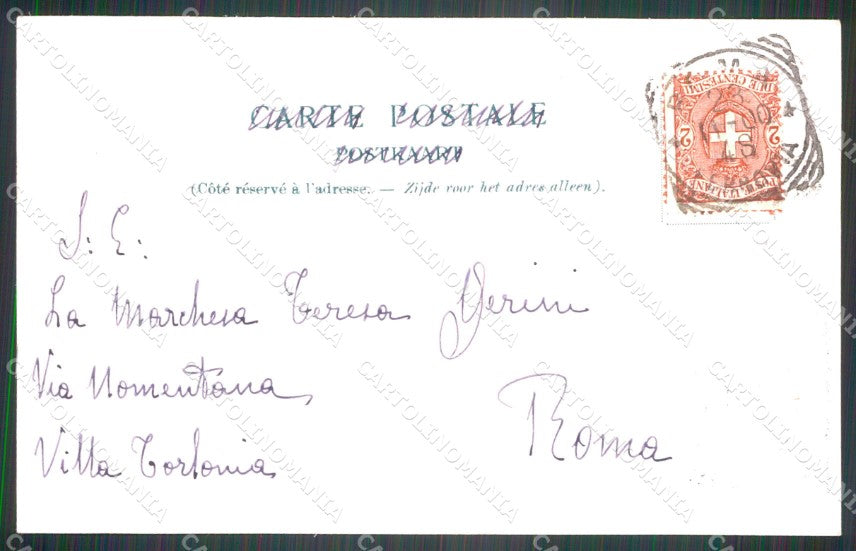 CARTE POSTALE
POSTKAART
(Côté réservé à l'adresse. — Zijde voor het adres alleen).
DUE CENTESIMI
2 2
POSTE ITALIANE
ROMA
S: E:
La Marchesa Teresa Gerini
Via Nomentana
Villa Torlonia
Roma
CARTOLINOMANIA